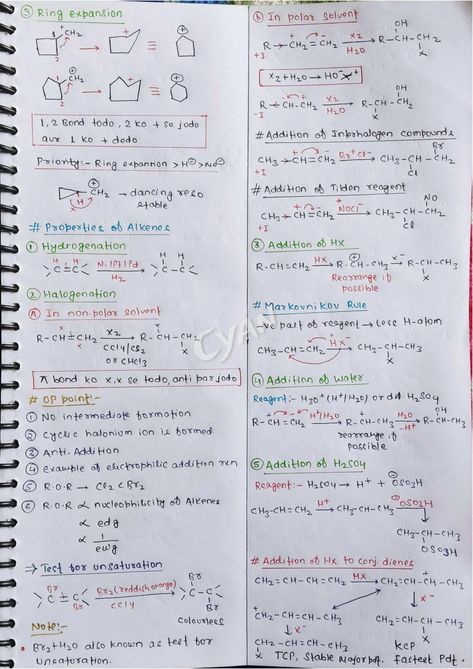 ③ Ring expansion
+CH₂
1
2
≡
⊕CH₂
1
2
≡
1,2 Bond todo, 2 ko + se jodo
aur 1 ko + dodo
Priority:- Ring expansion > H⊖ > Me⊖
H
→ dancing reso
stable
# Properties of Alkenes
① Hydrogenation
H H
>C=C<
Ni/Pt/Pd
H₂
H H
-C-C-
② Halogenation
Ⓐ In non-polar solvent
R-CH=CH₂
X₂
CCl₄/CS₂
or CHCl₃
R-CH-CH₂
X
X
π bond ko x,x se todo, anti par jodo
# OP point:-
① NO intermediate formation
② Cyclic halonium ion is formed
③ Anti-Addition
④ Example of electrophilic addition rxn
⑤ R.O.R → Cl₂ < Br₂
⑥ R.O.R ∝ nucleophilicity of Alkenes
∝ edg
∝ 1/ewg
⇒ Test for unsaturation
Br Br
>C=C<
Br₂ (reddish orange)
CCl₄
Br
>C-C<
Br
Colourless
Note:-
• Br₂+H₂O also known as test for
unsaturation.
ⓑ In polar solvent
R→CH=CH₂
+I
X₂
H₂O
OH
R-CH-CH₂
X
X₂+H₂O → HO⁻X⁺
R←CH-CH₂
-I
X₂
H₂O
R-CH-CH₂
X
OH
# Addition of Interhalogen compounds
CH₃→CH=CH₂
+I
Br⁺Cl⁻
Br
CH₃-CH-CH₂
Cl
# Addition of Tilden reagent
CH₃→CH=CH₂
+I
NOCl
NO
CH₃-CH-CH₂
Cl
③ Addition of HX
R-CH=CH₂
HX
R-CH-CH₃
X⁻
R-CH-CH₃
X
Rearrange if
possible
# Markovnikov Rule
-ve part of reagent → less H-atom
CH₃-CH=CH₂
HX
CH₃-CH-CH₃
X
④ Addition of water
Reagent:- H₃O⁺ (H⁺/H₂O) or dil H₂SO₄
R-CH=CH₂
+I
H⁺/H₂O
R-CH-CH₃
H₂O
-H⁺
R-CH-CH₃
OH
rearrange if
possible
⑤ Addition of H₂SO₄
Reagent:- H₂SO₄ → H⁺ + ⊖OSO₃H
CH₃-CH=CH₂
H⁺
CH₃-CH-CH₃
⊖OSO₃H
CH₃-CH-CH₃
OSO₃H
# Addition of HX to conj dienes
CH₂=CH-CH=CH₂
HX
CH₂=CH-CH-CH₃
CH₂-CH=CH-CH₃
X⁻
X⁻
CH₂-CH=CH-CH₃
X
CH₂=CH-CH-CH₃
X
TCP, Stable Major pdt.
KCP
Fastest Pdt.
CYAN